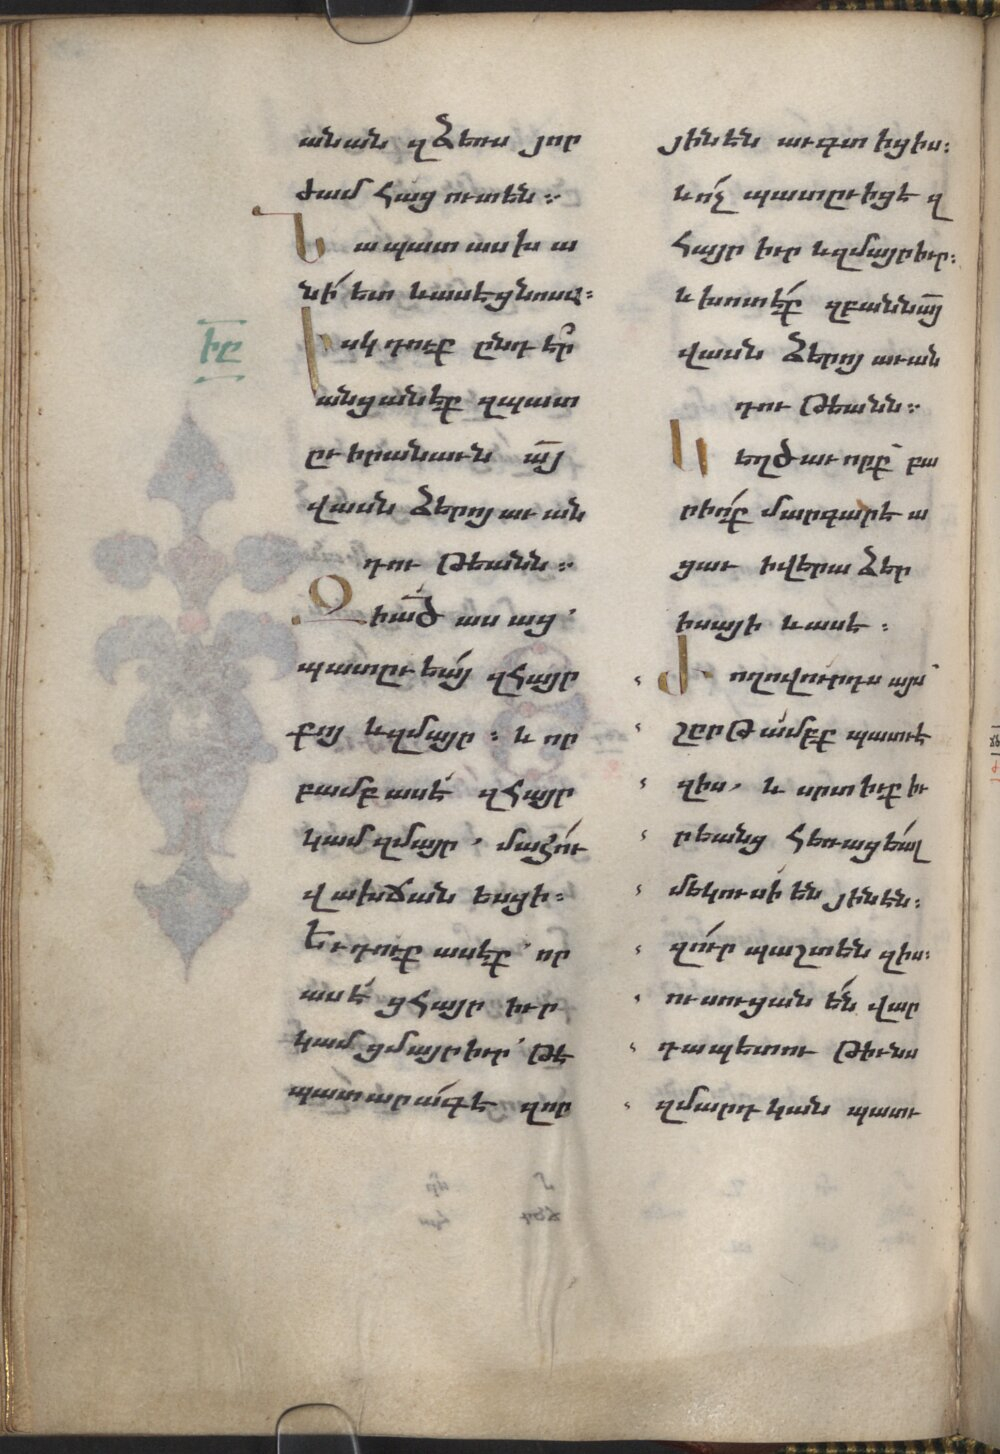 անան զձեռս յոր
ժամ հաց ուտեն։
Նա պատասխա
նի՛ ետ և ասէ ցնոսա։
իը
Իսկ դուք ընդէ՞ր
անցանէք զպատ
ուիրանաւն ա՟յ
վասն ձերոյ աւան
դութեանն։
Զի ա՟ծ ասաց՝
պատուեա՛յ զհայր
քոյ և զմայր։ և որ
բամբասէ՛ զհայր
կամ զմայր՝ մահո՛ւ
վախճան եսցի։
Եւ դուք ասէք՝ որ
ասէ՛ ցհայր իւր
կամ ցմայր իւր՝ թէ
պատարա՛գ է զոր
յինէն աւգտիցիս։
և ո՛չ պատուիցէ զ
հայր իւր և զմայր իւր։
և խոտէ՛ք զբանն ա՟յ
վասն ձերոյ աւան
դութեանն։
Կեղծաւորք՝ բա
րիո՛ք մարգարէա
ցաւ ի վերա ձեր
իսայի և ասէ։
Ժողովուրդս այս՝
շրթամբք պատուէ
զիս. և սրտիւք իւ
րեանց հեռացեա՛լ
մեկուսի՛ են յինէն։
զո՛ւր պաշտեն զիս։
ուսուցանե՛ն վար
դապետութիւնս
զմարդկան պատու